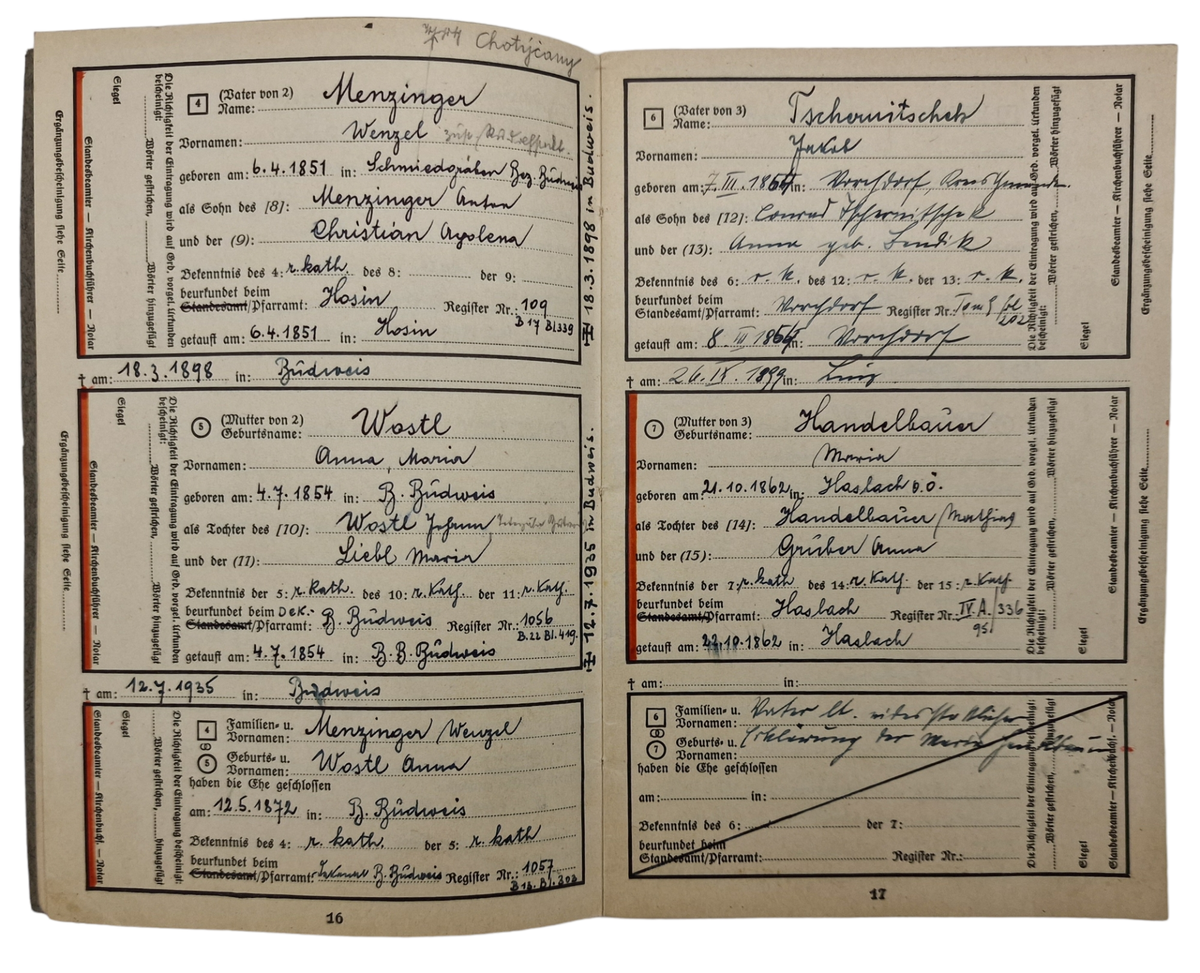 Chotýčany
4 (Vater von 2) Name: Menzinger
Vornamen: Wenzel
geboren am: 6.4.1851 in: Schmiedgraben Bez. Budweis
als Sohn des [8]: Menzinger Anton
und der (9): Christian Apolena
Bekenntnis des 4: r. kath. des 8: der 9:
beurkundet beim
Standesamt/Pfarramt: Hosin Register Nr.: 109
B 17 Bl 339
getauft am: 6.4.1851 in: Hosin
Die Richtigkeit der Eintragung wird auf Grd. vorgel. Urkunden
bescheinigt: Wörter gestrichen, Wörter hinzugefügt
Siegel
Standesbeamter — Kirchenbuchführer — Notar
Ergänzungsbescheinigung siehe Seite
18.3.1898 in Budweis.
† am: 18.3.1898 in: Budweis
5 (Mutter von 2) Geburtsname: Wostl
Vornamen: Anna, Maria
geboren am: 4.7.1854 in: B. Budweis
als Tochter des [10]: Wostl Johann
und der (11): Liebl Maria
Bekenntnis der 5: r. kath. des 10: r. Kath. der 11: r. Kath.
beurkundet beim Dek.-
Standesamt/Pfarramt: B. Budweis Register Nr.: 1056
B. 22 Bl. 419.
getauft am: 4.7.1854 in: B. B. Budweis
Die Richtigkeit der Eintragung wird auf Grd. vorgel. Urkunden
bescheinigt: Wörter gestrichen, Wörter hinzugefügt
Siegel
Standesbeamter — Kirchenbuchführer — Notar
Ergänzungsbescheinigung siehe Seite
12.7.1935 in Budweis.
† am: 12.7.1935 in: Budweis
4 Familien- u. Vornamen: Menzinger Wenzel
5 Geburts- u. Vornamen: Wostl Anna
haben die Ehe geschlossen
am: 12.5.1872 in: B. Budweis
Bekenntnis des 4: r. kath. der 5: r. kath
beurkundet beim
Standesamt/Pfarramt: Dekanat B. Budweis Register Nr.: 1057
B 13. Bl. 303
Die Richtigkeit der Eintragung bescheinigt:
Wörter gestrichen, Wörter hinzugefügt
Siegel
Standesbeamter — Kirchenbuchf. — Notar
16
6 (Vater von 3) Name: Tschernitschek
Vornamen: Jakob
geboren am: 7. III. 1864 in: Vorchdorf, Kreis Gmunden
als Sohn des [12]: Conrad Tschernitschek
und der (13): Anna geb. Sendik
Bekenntnis des 6: r. k. des 12: r. k. der 13: r. k.
beurkundet beim
Standesamt/Pfarramt: Vorchdorf Register Nr.: Tom 5 fol 202
getauft am: 8. III 1864 in: Vorchdorf
Die Richtigkeit der Eintragung wird auf Grd. vorgel. Urkunden
bescheinigt: Wörter gestrichen, Wörter hinzugefügt
Siegel
Standesbeamter — Kirchenbuchführer — Notar
Ergänzungsbescheinigung siehe Seite
† am: 26. IX. 1899 in: Linz
7 (Mutter von 3) Geburtsname: Handelbauer
Vornamen: Maria
geboren am: 21.10.1862 in: Haslach O.Ö.
als Tochter des [14]: Handelbauer Mathias
und der (15): Gruber Anna
Bekenntnis der 7: r. kath des 14: r. Kath. der 15: r. Kath
beurkundet beim
Standesamt/Pfarramt: Haslach Register Nr.: IV. A. 336
95
getauft am: 22.10.1862 in: Haslach
Die Richtigkeit der Eintragung wird auf Grd. vorgel. Urkunden
bescheinigt: Wörter gestrichen, Wörter hinzugefügt
Siegel
Standesbeamter — Kirchenbuchführer — Notar
Ergänzungsbescheinigung siehe Seite
† am: in:
6 Familien- u. Vornamen: Vater lt. eidesstattlicher
7 Geburts- u. Vornamen: Erklärung der Maria Handelbauer
haben die Ehe geschlossen
am: in:
Bekenntnis des 6: der 7:
beurkundet beim
Standesamt/Pfarramt: Register Nr.:
Die Richtigkeit der Eintragung bescheinigt:
Wörter gestrichen, Wörter hinzugefügt
Siegel
Standesbeamter — Kirchenbuchf. — Notar
17